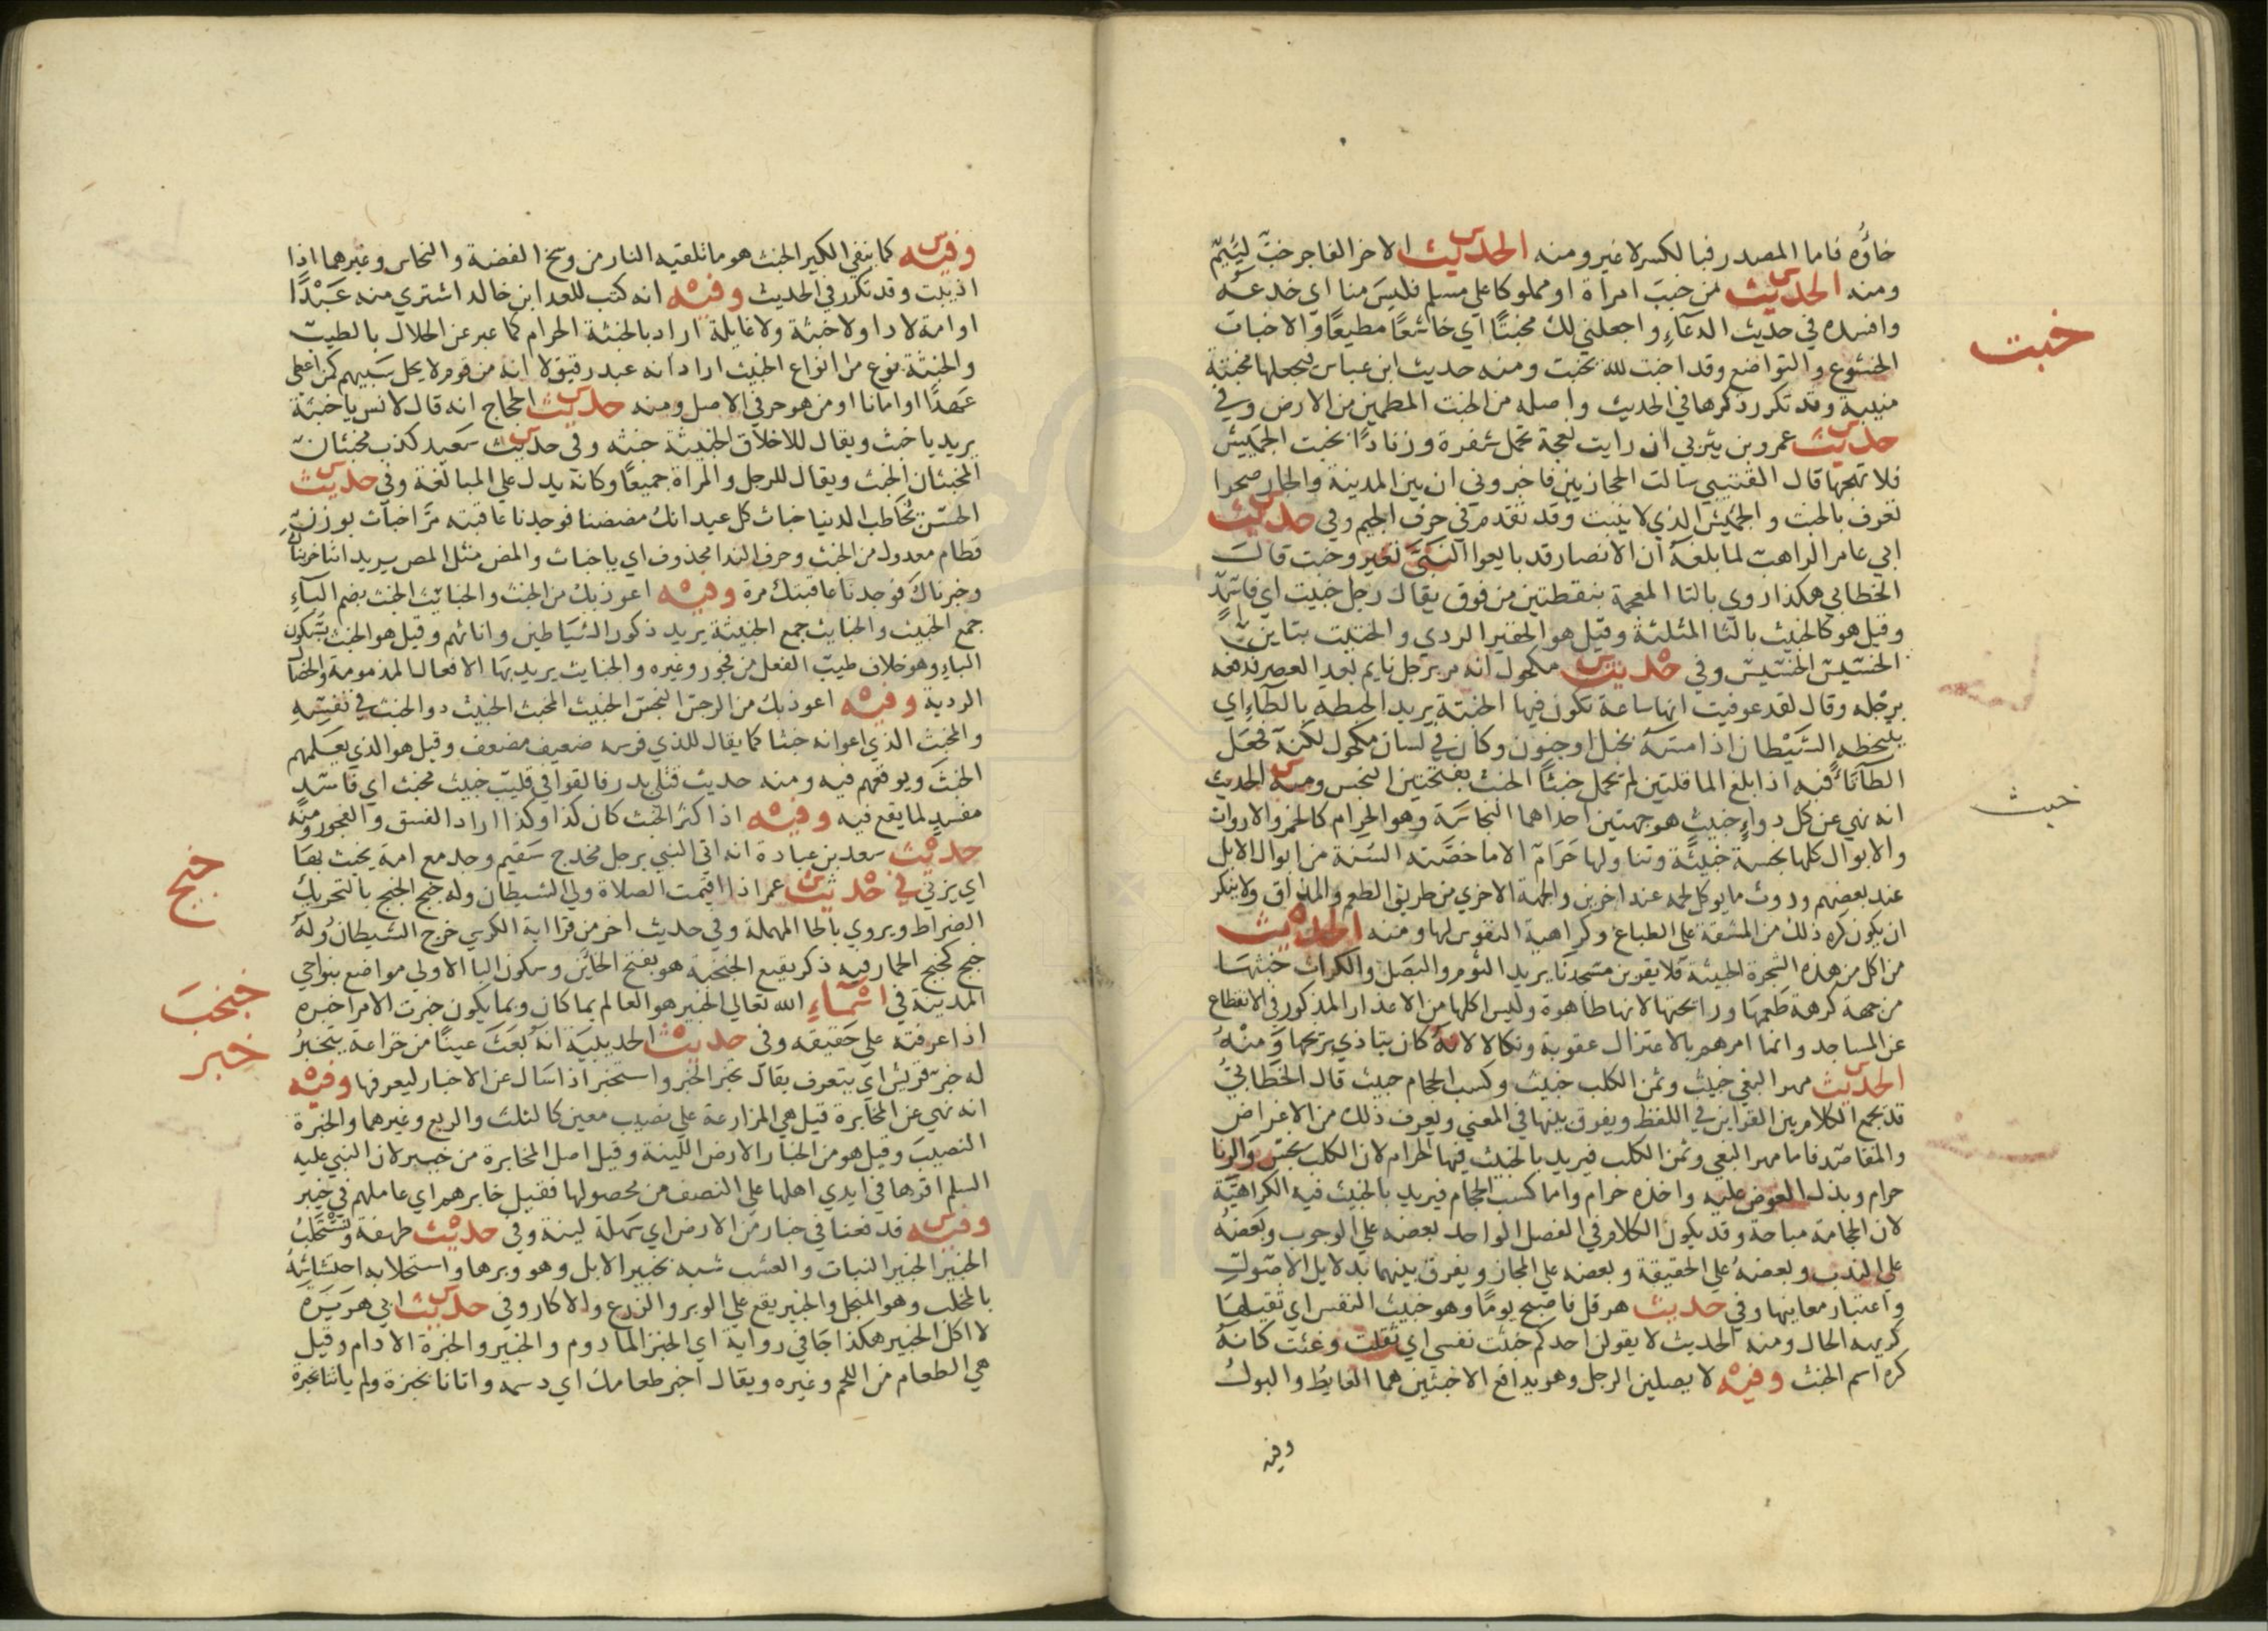 خاؤه فاما المصدر فبالكسر لا غير ومنه الحديث الاخر الفاجر خب لئيم
ومنه الحديث من خبب امراة او مملوكا علي مسلم فليس منا اي خدعه
وافسده في حديث الدعاء واجعلني لك مخبتا اي خاشعا مطيعا والاخبات
الخشوع والتواضع وقد اخبت لله يخبت ومنه حديث ابن عباس ليجعلها مخبتة
منيبة وقد تكرر ذكرها في الحديث واصله من الخبت المطمين من الارض وفي
حديث عمرو بن يثربي ان رايت نعجة تحمل شفرة وزنادا بخبت الجميش
فلا تهجها قال القتيبي سالت الحجازيين فاخبروني ان بين المدينة والجار صحرا
تعرف بالخبت والجميش الذي لا ينبت وقد تقدم في حرف الجيم وفي حديث
ابي عامر الراهب لما بلغه ان الانصار قد بايعوا النبي تغير وخبت قال
الخطابي هكذا روي بالتا المعجمة بنقطتين من فوق يقال رجل خبيت اي فاسد
وقيل هو كالخبيث بالثا المثلثة وقيل هو الحقير الردي والختيت بتاين
الخسيس الخسيس وفي حديث مكحول انه مر برجل نايم بعد العصر فدفعه
برجله وقال لقد عوفيت انها ساعة تكون فيها الخبتة يريد الخبطه بالطاء اي
يتخبطه الشيطان اذا مسه بخبل او جنون وكان في لسان مكحول لكنة فجعل
الطا تا فيه اذا بلغ الما قلتين لم يحمل خبثا الخبث بفتحتين النجس ومنه الحديث
انه نهي عن كل دواء خبيث هو جهتين احداهما النجاسة وهو الحرام كالخمر والاروات
والابوال كلها نجسة خبيثة وتناولها حرام الا ما خصته السنة من ابوال الابل
عند بعضهم وروث ما يوكل لحمه عند اخرين والجهة الاخري من طريق الطعم والمذاق ولا ينكر
ان يكون كره ذلك من المشقة علي الطباع وكراهية النفوس لها ومنه الحديث
من اكل من هذه الشجرة الخبيثة فلا يقربن مسجدنا يريد الثوم والبصل والكراث خبثها
من جهة كرهة طعمها ورائحتها لانها طاهرة وليس اكلها من الاعذار المذكور في الانقطاع
عن المساجد وانما امرهم بالاعتزال عقوبة ونكالا لانه كان يتاذي بريحها ومنه
الحديث مهر البغي خبيث وثمن الكلب خبيث وكسب الحجام خبيث قال الخطابي
قد يجمع الكلام بين القراين في اللفظ ويفرق بينها في المعني ويعرف ذلك من الاغراض
والمقاصد فاما مهر البغي وثمن الكلب فيريد بالخبيث فيها الحرام لان الكلب نجس والزنا
حرام وبذل العوض عليه واخذه حرام واما كسب الحجام فيريد بالخبيث فيه الكراهية
لان الحجامة مباحة وقد يكون الكلام في الفصل الواحد بعضه علي الوجوب وبعضه
علي الندب وبعضه علي الحقيقة وبعضه علي المجاز ويفرق بينهما بدلايل الاصول
واعتبار معانيها وفي حديث هرقل فاصبح يوما وهو خبيث النفس اي ثقيلها
كريه الحال ومنه الحديث لا يقولن احدكم خبثت نفسي اي ثقلت وغثت كانه
كره اسم الخبث وفيه لا يصلين الرجل وهو يدافع الاخبثين هما الغايط والبول
وفيه
خبت
خبث
وفيه كما ينفي الكير الخبث هو ما تلقيه النار من وسخ الفضة والنحاس وغيرهما اذا
اذيبت وقد تكرر في الحديث وفيه انه كتب للعدا ابن خالد اشتري منه عبدا
او امة لا دا ولا خبثة ولا غايلة اراد بالخبثة الحرام كما عبر عن الحلال بالطيب
والخبثة نوع من انواع الخبيث اراد انه عبد رقيق لا انه من قوم لا يحل سبيهم كمن اعطي
عهدا او امانا او من هو حر في الاصل ومنه حديث الحجاج انه قال لانس يا خبثة
يريد يا خبث ويقال للاخلاق الخبيثة خبثه وفي حديث سعيد كذب مخبثان
المخبثان الخبث ويقال للرجل والمراة جميعا وكانه يدل علي المبالغة وفي حديث
الحسن يخاطب الدنيا خباث كل عيدانك مضضنا فوجدنا عاقبته مرا خباث بوزن
قطام معدول من الخبث وحرف الندا محذوف اي يا خباث والمض مثل المص يريد انا جربناك
وخبرناك فوجدنا عاقبتك مرة وفيه اعوذ بك من الخبث والخبائث الخبث بضم الباء
جمع الخبيث والخبايث جمع الخبيثة يريد ذكور الشياطين واناثهم وقيل هو الخبث بسكون
الباء وهو خلاف طيب الفعل من فجور وغيره والخبايث يريد بها الافعال المذمومة والخصال
الردية وفيه اعوذ بك من الرجس النجس الخبيث المخبث الخبيث ذو الخبث في نفسه
والمخبث الذي اعوانه خبثا كما يقال للذي فرسه ضعيف مضعف وقيل هو الذي يعلمهم
الخبث ويوقعهم فيه ومنه حديث قتلي بدر فالقوا في قليب خبيث مخبث اي فاسد
مفسد لما يقع فيه وفيه اذا كثر الخبث كان كذا وكذا اراد الفسق والفجور ومنه
حديث سعد بن عبادة انه اتي النبي برجل مخدج سقيم وجد مع امة يخبث بها
اي يزني في حديث عمر اذا اقيمت الصلاة ولي الشيطان وله خبج الخبج بالتحريك
الضراط ويروي بالحا المهملة وفي حديث اخر من قرا اية الكرسي خرج الشيطان وله
خبج كخبج الحمار فيه ذكر بقيع الخبخبة هو بفتح الخائين وسكون البا الاولي مواضع بنواحي
المدينة في اسماء الله تعالي الخبير هو العالم بما كان وبما يكون خبرت الامر اخبره
اذا عرفته علي حقيقه وفي حديث الحديبية انه بعث عينا من خزاعة يتخبر
له خبر قريش اي يتعرف يقال تخبر الخبر واستخبر اذا سال عن الاخبار ليعرفها وفيه
انه نهي عن المخابرة قيل هي المزارعة علي نصيب معين كالثلث والربع وغيرهما والخبرة
النصيب وقيل هو من الخبار الارض اللينة وقيل اصل المخابرة من خيبر لان النبي عليه
السلم اقرها في ايدي اهلها علي النصف من محصولها فقيل خابرهم اي عاملهم في خيبر
وفيه فدفعنا في خبار من الارض اي سهلة لينة وفي حديث طهفة ونستخلب
الخبير الخبير النبات والعشب شبه بخبير الابل وهو وبرها واستخلابه احتشائه
بالمخلب وهو المنجل والخبير يقع علي الوبر والزرع والاكار وفي حديث ابي هريرة
لا اكل الخبير هكذا جا في رواية اي الخبز المادوم والخبير والخبرة الادام وقيل
هي الطعام من اللحم وغيره ويقال اخبر طعامك اي دسمه واتانا بخبزة ولم ياتنا بخبرة
خبج
خبخب
خبر